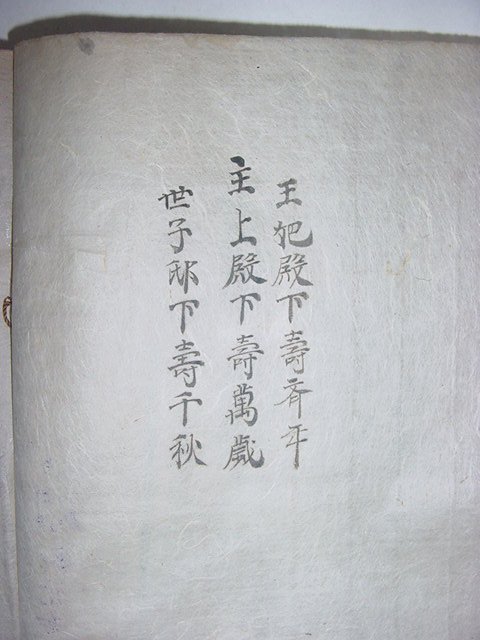 王妃殿下壽齊年
主上殿下壽萬歲
世子邸下壽千秋